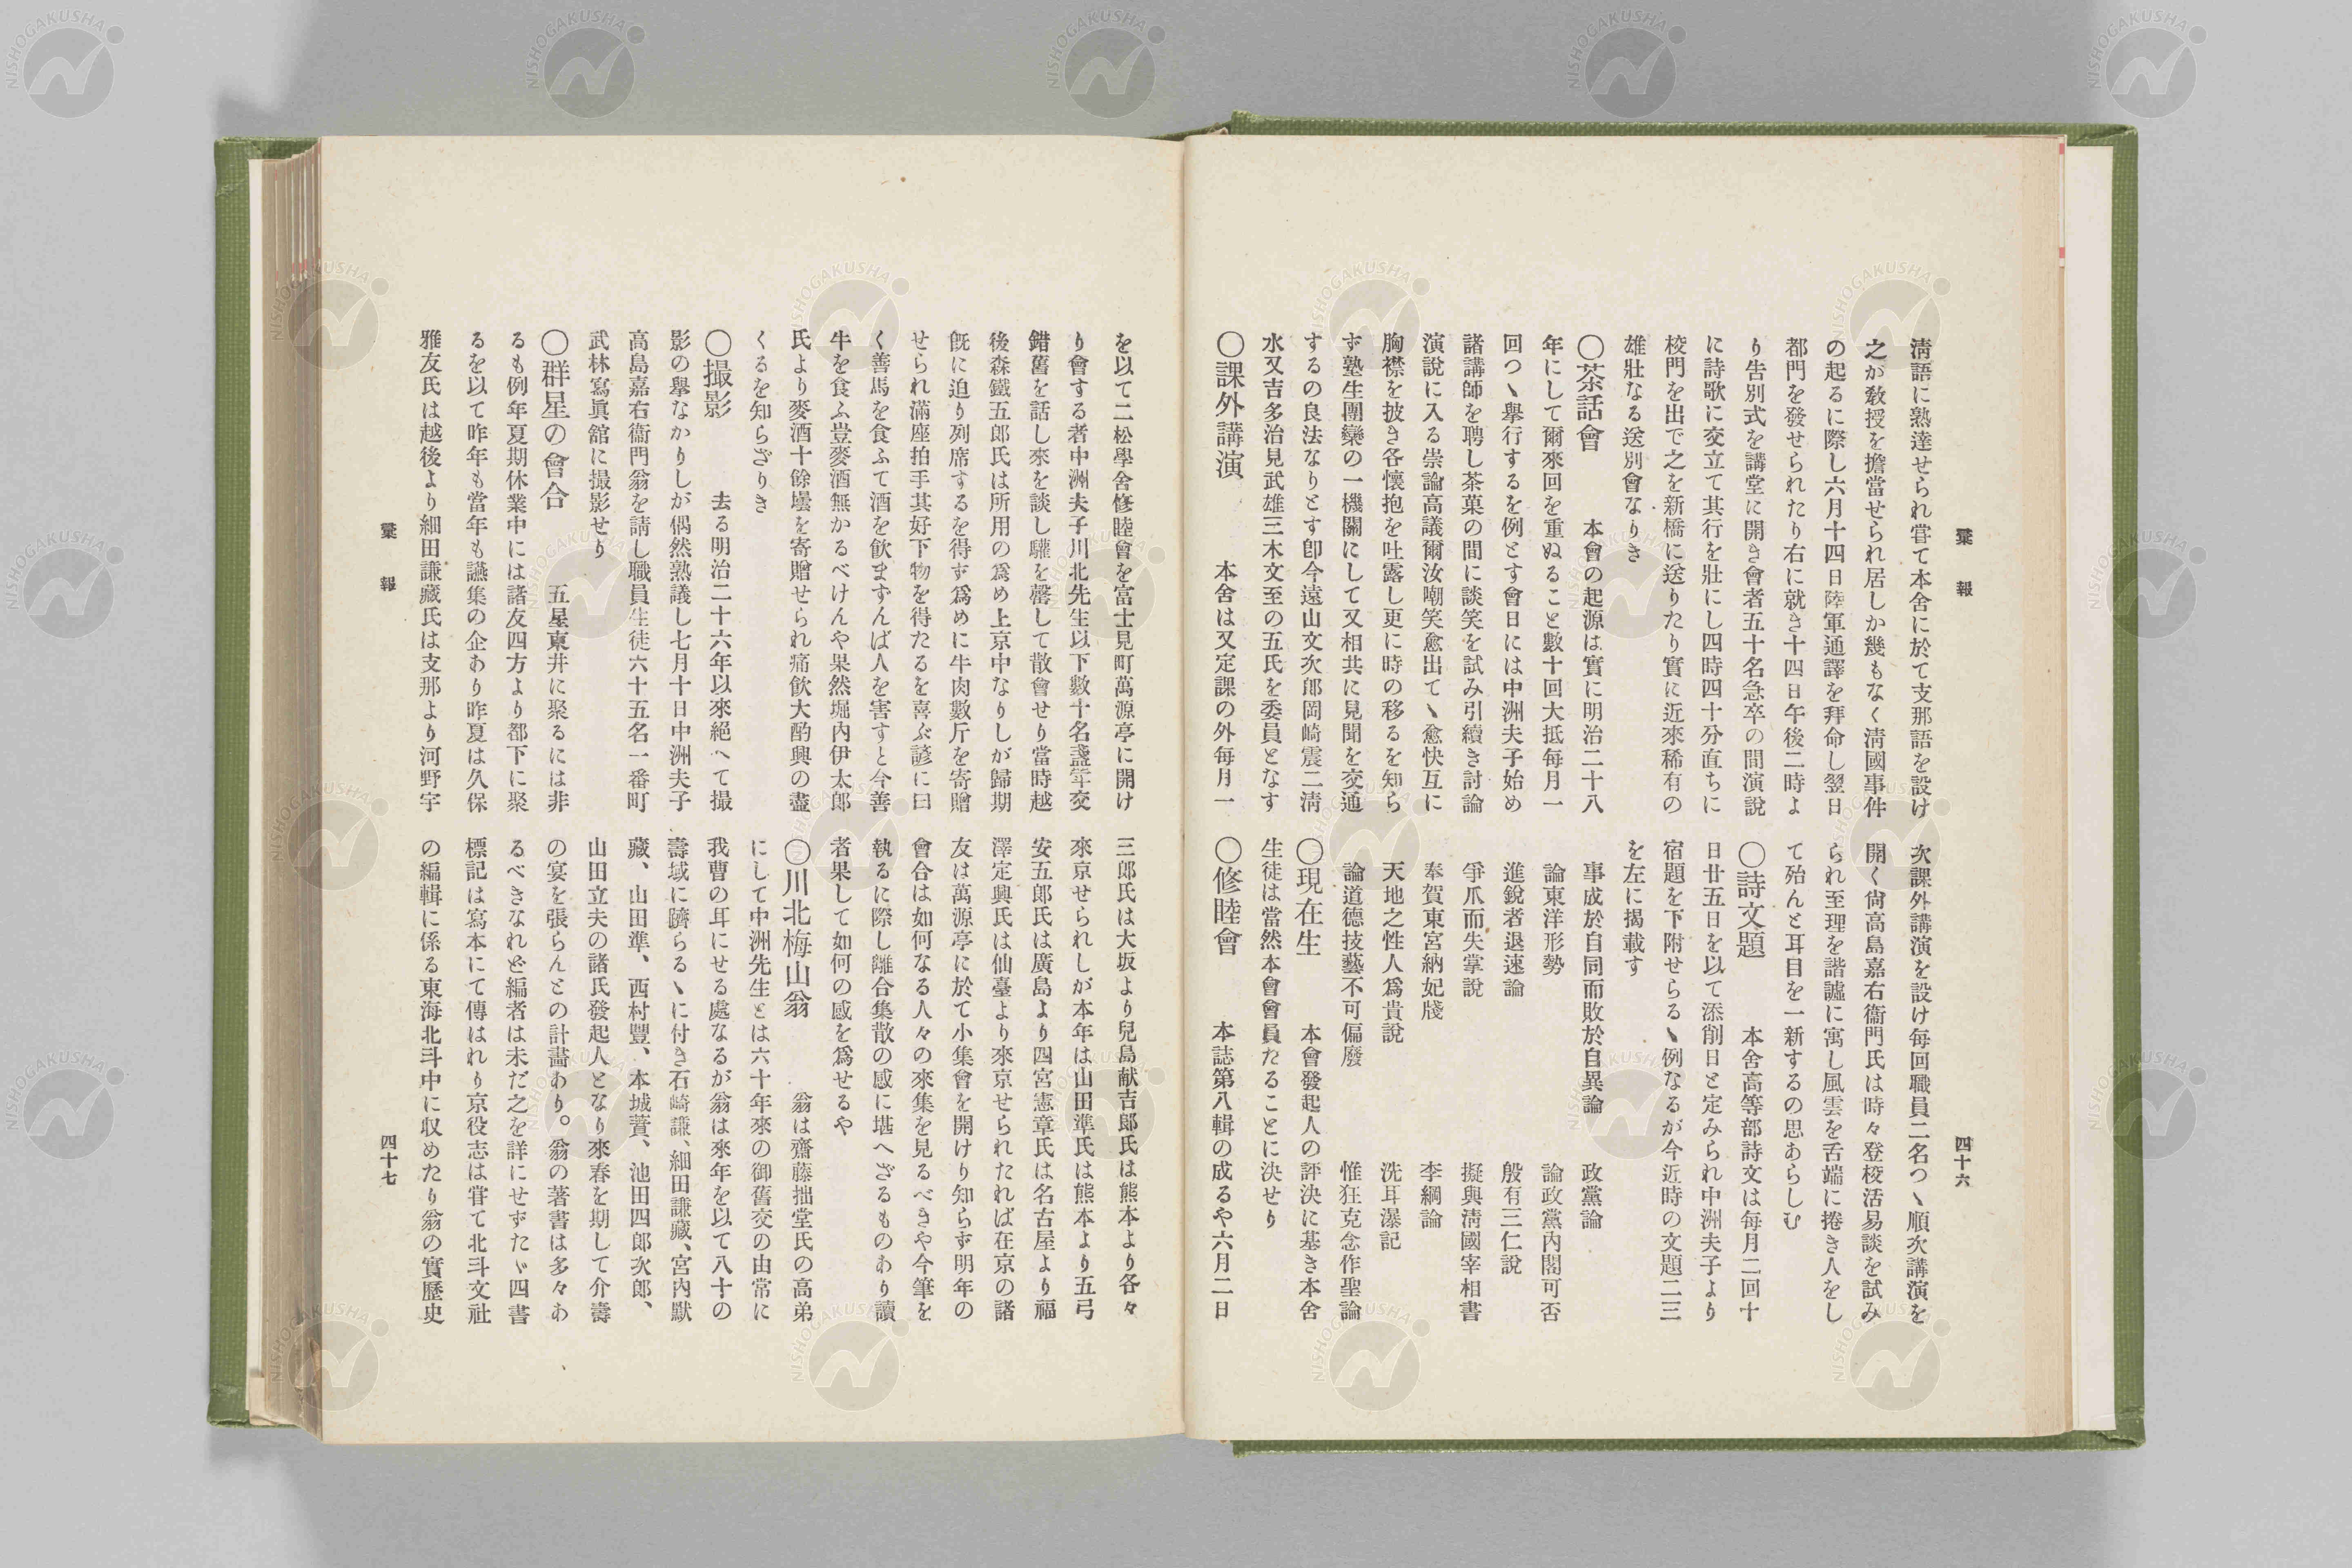 彙報
四十六
淸語に熟達せられ甞て本舍に於て支那語を設け
之が敎授を擔當せられ居しか幾もなく淸國事件
の起るに際し六月十四日陸軍通譯を拜命し翌日
都門を發せられたり右に就き十四日午後二時よ
り告別式を講堂に開き會者五十名急卒の間演說
に詩歌に交立て其行を壯にし四時四十分直ちに
校門を出で之を新橋に送りたり實に近來稀有の
雄壯なる送別會なりき
〇茶話會 本會の起源は實に明治二十八
年にして爾來回を重ぬること數十回大抵每月一
回つヽ擧行するを例とす會日には中洲夫子始め
諸講師を聘し茶菓の間に談笑を試み引續き討論
演說に入る崇論高議爾汝嘲笑愈出てヽ愈快互に
胸襟を披き各懷抱を吐露し更に時の移るを知ら
ず塾生團欒の一機關にして又相共に見聞を交通
するの良法なりとす卽今遠山文次郎岡崎震二淸
水又吉多治見武雄三木文至の五氏を委員となす
〇課外講演 本舍は又定課の外每月一
次課外講演を設け每回職員二名つヽ順次講演を
開く尙高島嘉右衞門氏は時々登校活易談を試み
られ至理を諧謔に寓し風雲を舌端に捲き人をし
て殆んと耳目を一新するの思あらしむ
〇詩文題 本舍高等部詩文は每月二回十
日廿五日を以て添削日と定みられ中洲夫子より
宿題を下附せらるヽ例なるが今近時の文題二三
を左に揭載す
事成於自同而敗於自異論 政黨論
論東洋形勢 論政黨內閣可否
進銳者退速論 殷有三仁說
爭爪而失掌說 擬與淸國宰相書
奉賀東宮納妃牋 李綱論
天地之性人爲貴說 洗耳瀑記
論道德技藝不可偏廢 惟狂克念作聖論
〇現在生 本會發起人の評決に基き本舍
生徒は當然本會會員たることに決せり
〇修睦會 本誌第八輯の成るや六月二日
を以て二松學舍修睦會を富士見町萬源亭に開け
り會する者中洲夫子川北先生以下數十名盞斝交
錯舊を話し來を談し驩を罄して散會せり當時越
後森鐵五郎氏は所用の爲め上京中なりしが歸期
旣に迫り列席するを得ず爲めに牛肉數斤を寄贈
せられ滿座拍手其好下物を得たるを喜ぶ諺に曰
く善馬を食ふて酒を飮まずんば人を害すと今善
牛を食ふ豈麥酒無かるべけんや果然堀內伊太郎
氏より麥酒十餘壜を寄贈せられ痛飮大酌興の盡
くるを知らざりき
〇撮影 去る明治二十六年以來絕へて撮
影の擧なかりしが偶然熟議し七月十日中洲夫子
高島嘉右衞門翁を請し職員生徒六十五名一番町
武林寫眞舘に撮影せり
〇群星の會合 五星東井に聚るには非
るも例年夏期休業中には諸友四方より都下に聚
るを以て昨年も當年も讌集の企あり昨夏は久保
雅友氏は越後より細田謙藏氏は支那より河野宇
三郎氏は大坂より兒島献吉郎氏は熊本より各々
來京せられしが本年は山田準氏は熊本より五弓
安五郎氏は廣島より四宮憲章氏は名古屋より福
澤定興氏は仙臺より來京せられたれば在京の諸
友は萬源亭に於て小集會を開けり知らず明年の
會合は如何なる人々の來集を見るべきや今筆を
執るに際し離合集散の感に堪へざるものあり讀
者果して如何の感を爲せるや
〇川北梅山翁 翁は齋藤拙堂氏の高弟
にして中洲先生とは六十年來の御舊交の由常に
我曹の耳にせる處なるが翁は來年を以て八十の
壽域に躋らるヽに付き石崎謙、細田謙藏、宮內默
藏、山田準、西村豐、本城蕡、池田四郎次郎、
山田立夫の諸氏發起人となり來春を期して介壽
の宴を張らんとの計畵あり。翁の著書は多々あ
るべきなれど編者は未だ之を詳にせずたゞ四書
標記は寫本にて傳はれり京役志は甞て北斗文社
の編輯に係る東海北斗中に収めたり翁の實歷史
彙報
四十七